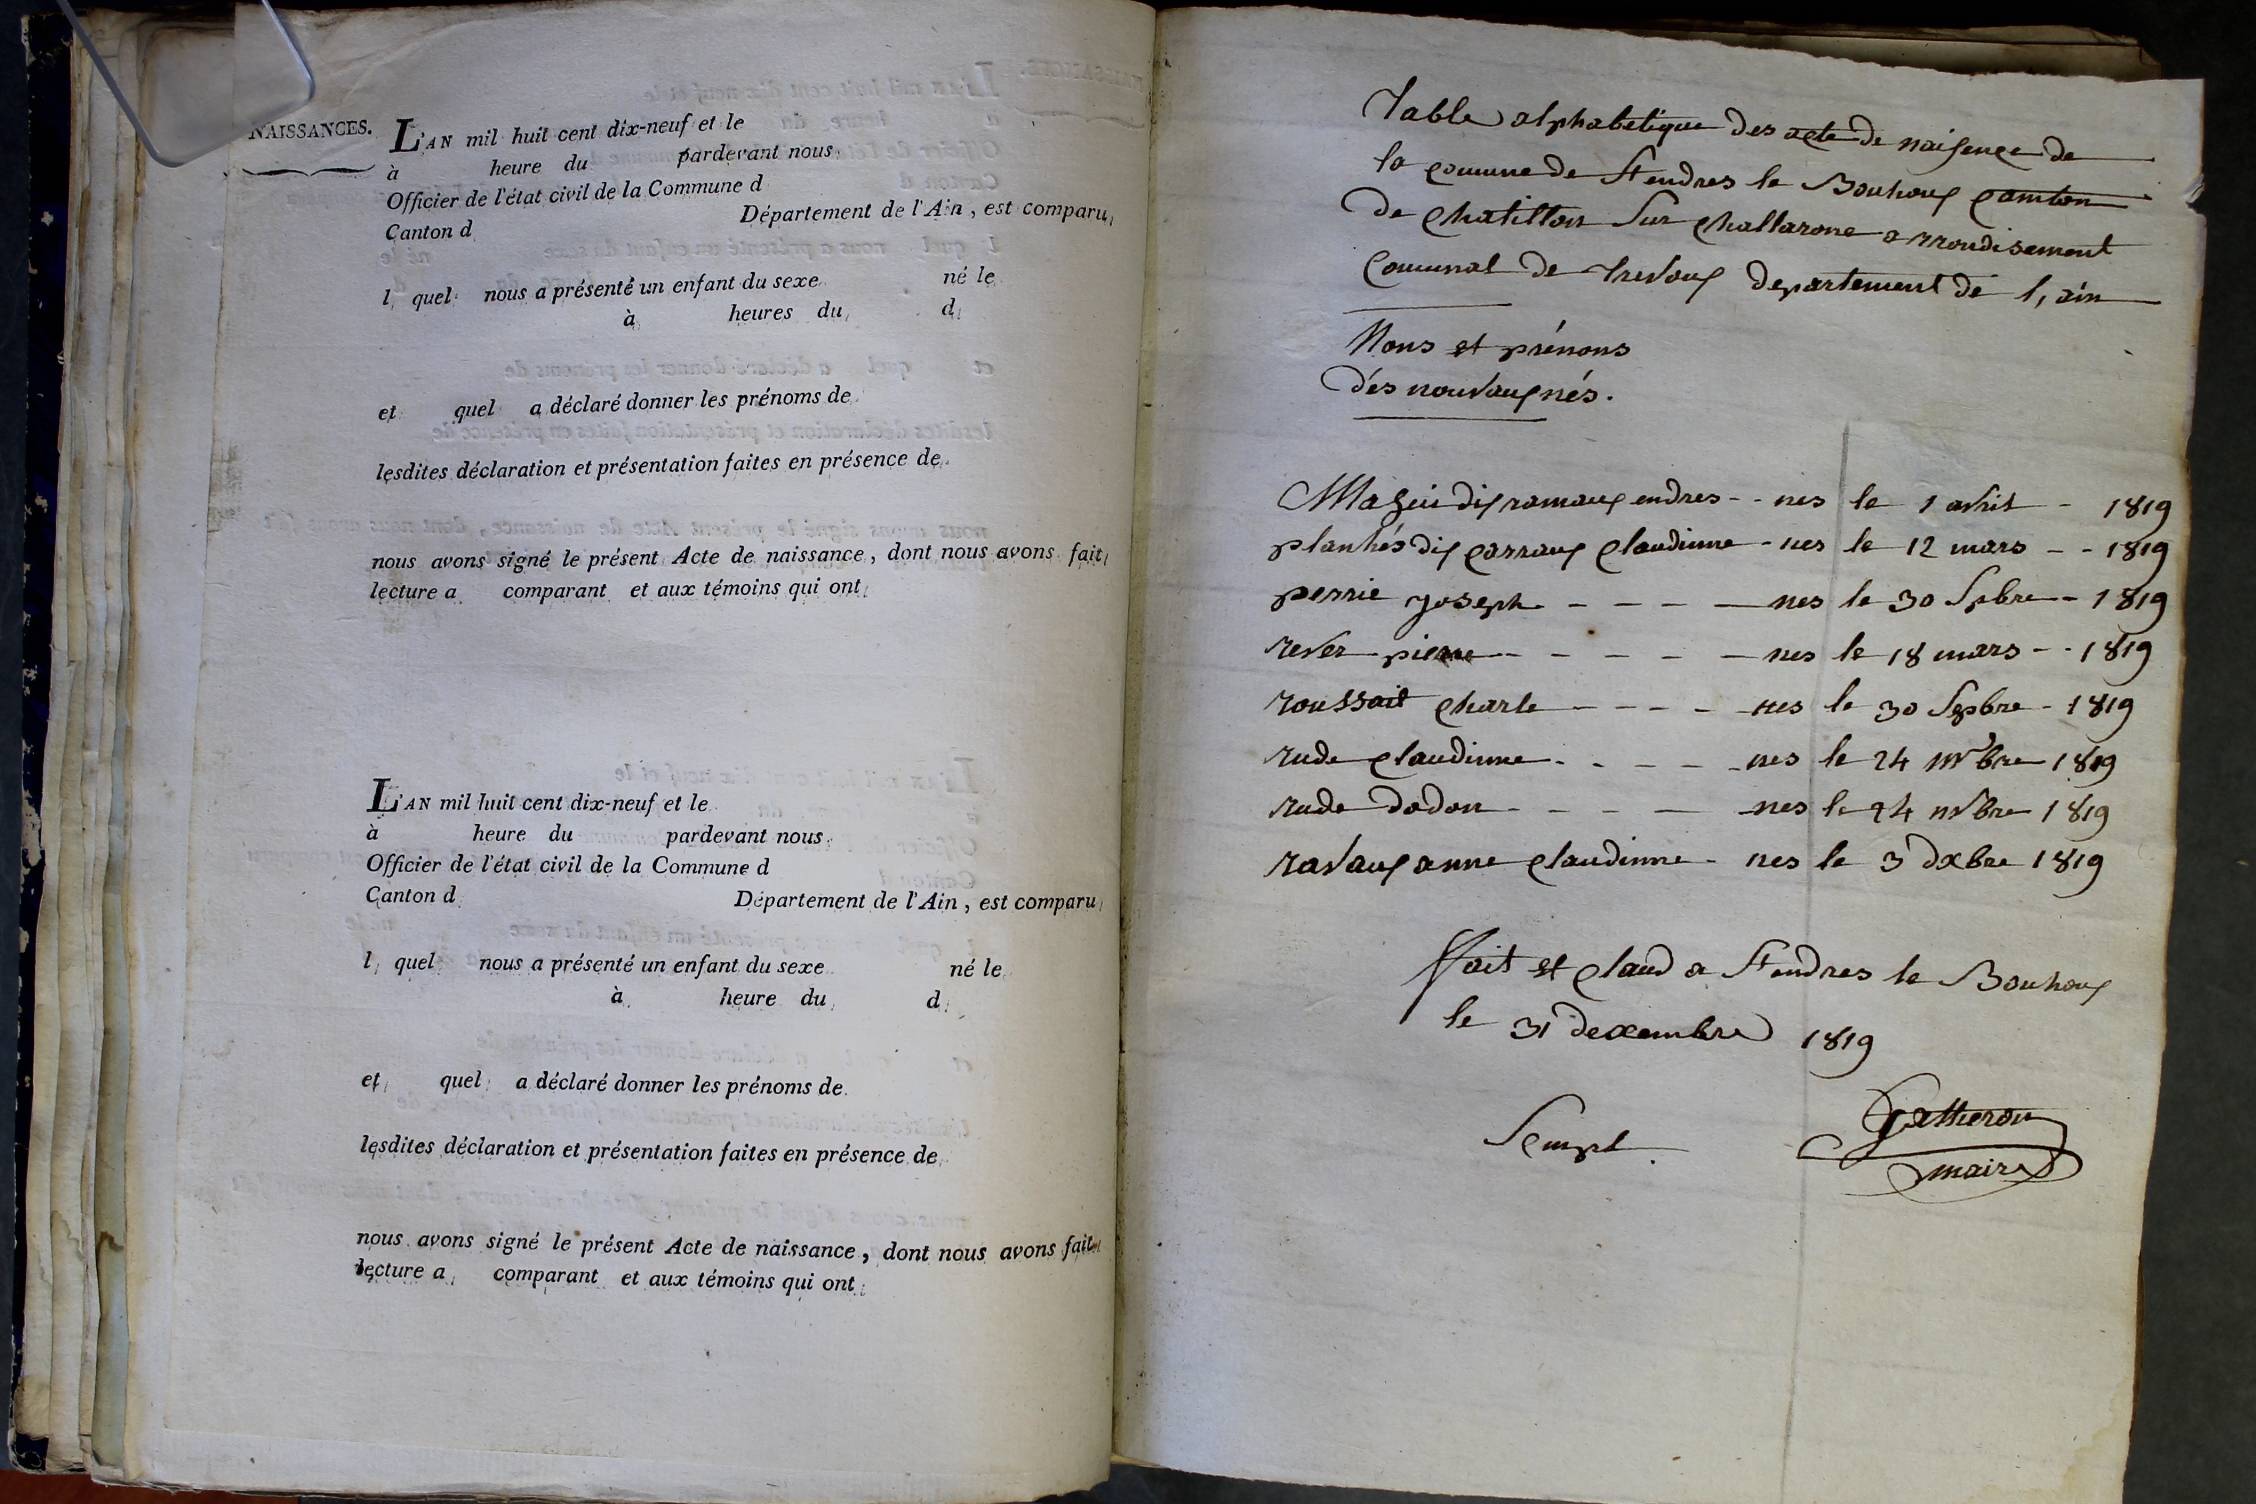 NAISSANCES.
L'AN mil huit cent dix-neuf et le
à heure du pardevant nous
Officier de l'état civil de la Commune d
Canton d Département de l'Ain, est comparu
l quel nous a présenté un enfant du sexe né le
à heures du d
et quel a déclaré donner les prénoms de
lesdites déclaration et présentation faites en présence de
nous avons signé le présent Acte de naissance, dont nous avons fait
lecture a comparant et aux témoins qui ont
L'AN mil huit cent dix-neuf et le
à heure du pardevant nous
Officier de l'état civil de la Commune d
Canton d Département de l'Ain, est comparu
l quel nous a présenté un enfant du sexe né le
à heure du d
et quel a déclaré donner les prénoms de
lesdites déclaration et présentation faites en présence de
nous avons signé le présent Acte de naissance, dont nous avons fait
lecture a comparant et aux témoins qui ont
Table alphabetique des acte de naisence de
la comune de St endres le Bouhoux camton
de chatillon sur challarone arroudisement
Comunal de trevoux departement de l,ain
Nons et prénons
dés nouvaux nés.
dix ramaux endres - - nes le 1 avril - 1819
planhés dix carraux claudinne - nes le 12 mars - - 1819
perrie joseph - - - - nes le 30 Spbre - 1819
rever pierre - - - - - nes le 18 mars - - 1819
roussait charle - - - - nes le 30 Sepbre - 1819
rude claudinne - - - - - nes le 24 nvbre 1819
rude dodon - - - - nes le 24 nvbre 1819
ravaux anne claudinne - nes le 3 dxbre 1819
fait et claud a St endres le Bouhoux
le 31 dexembre 1819
gatheron
maire